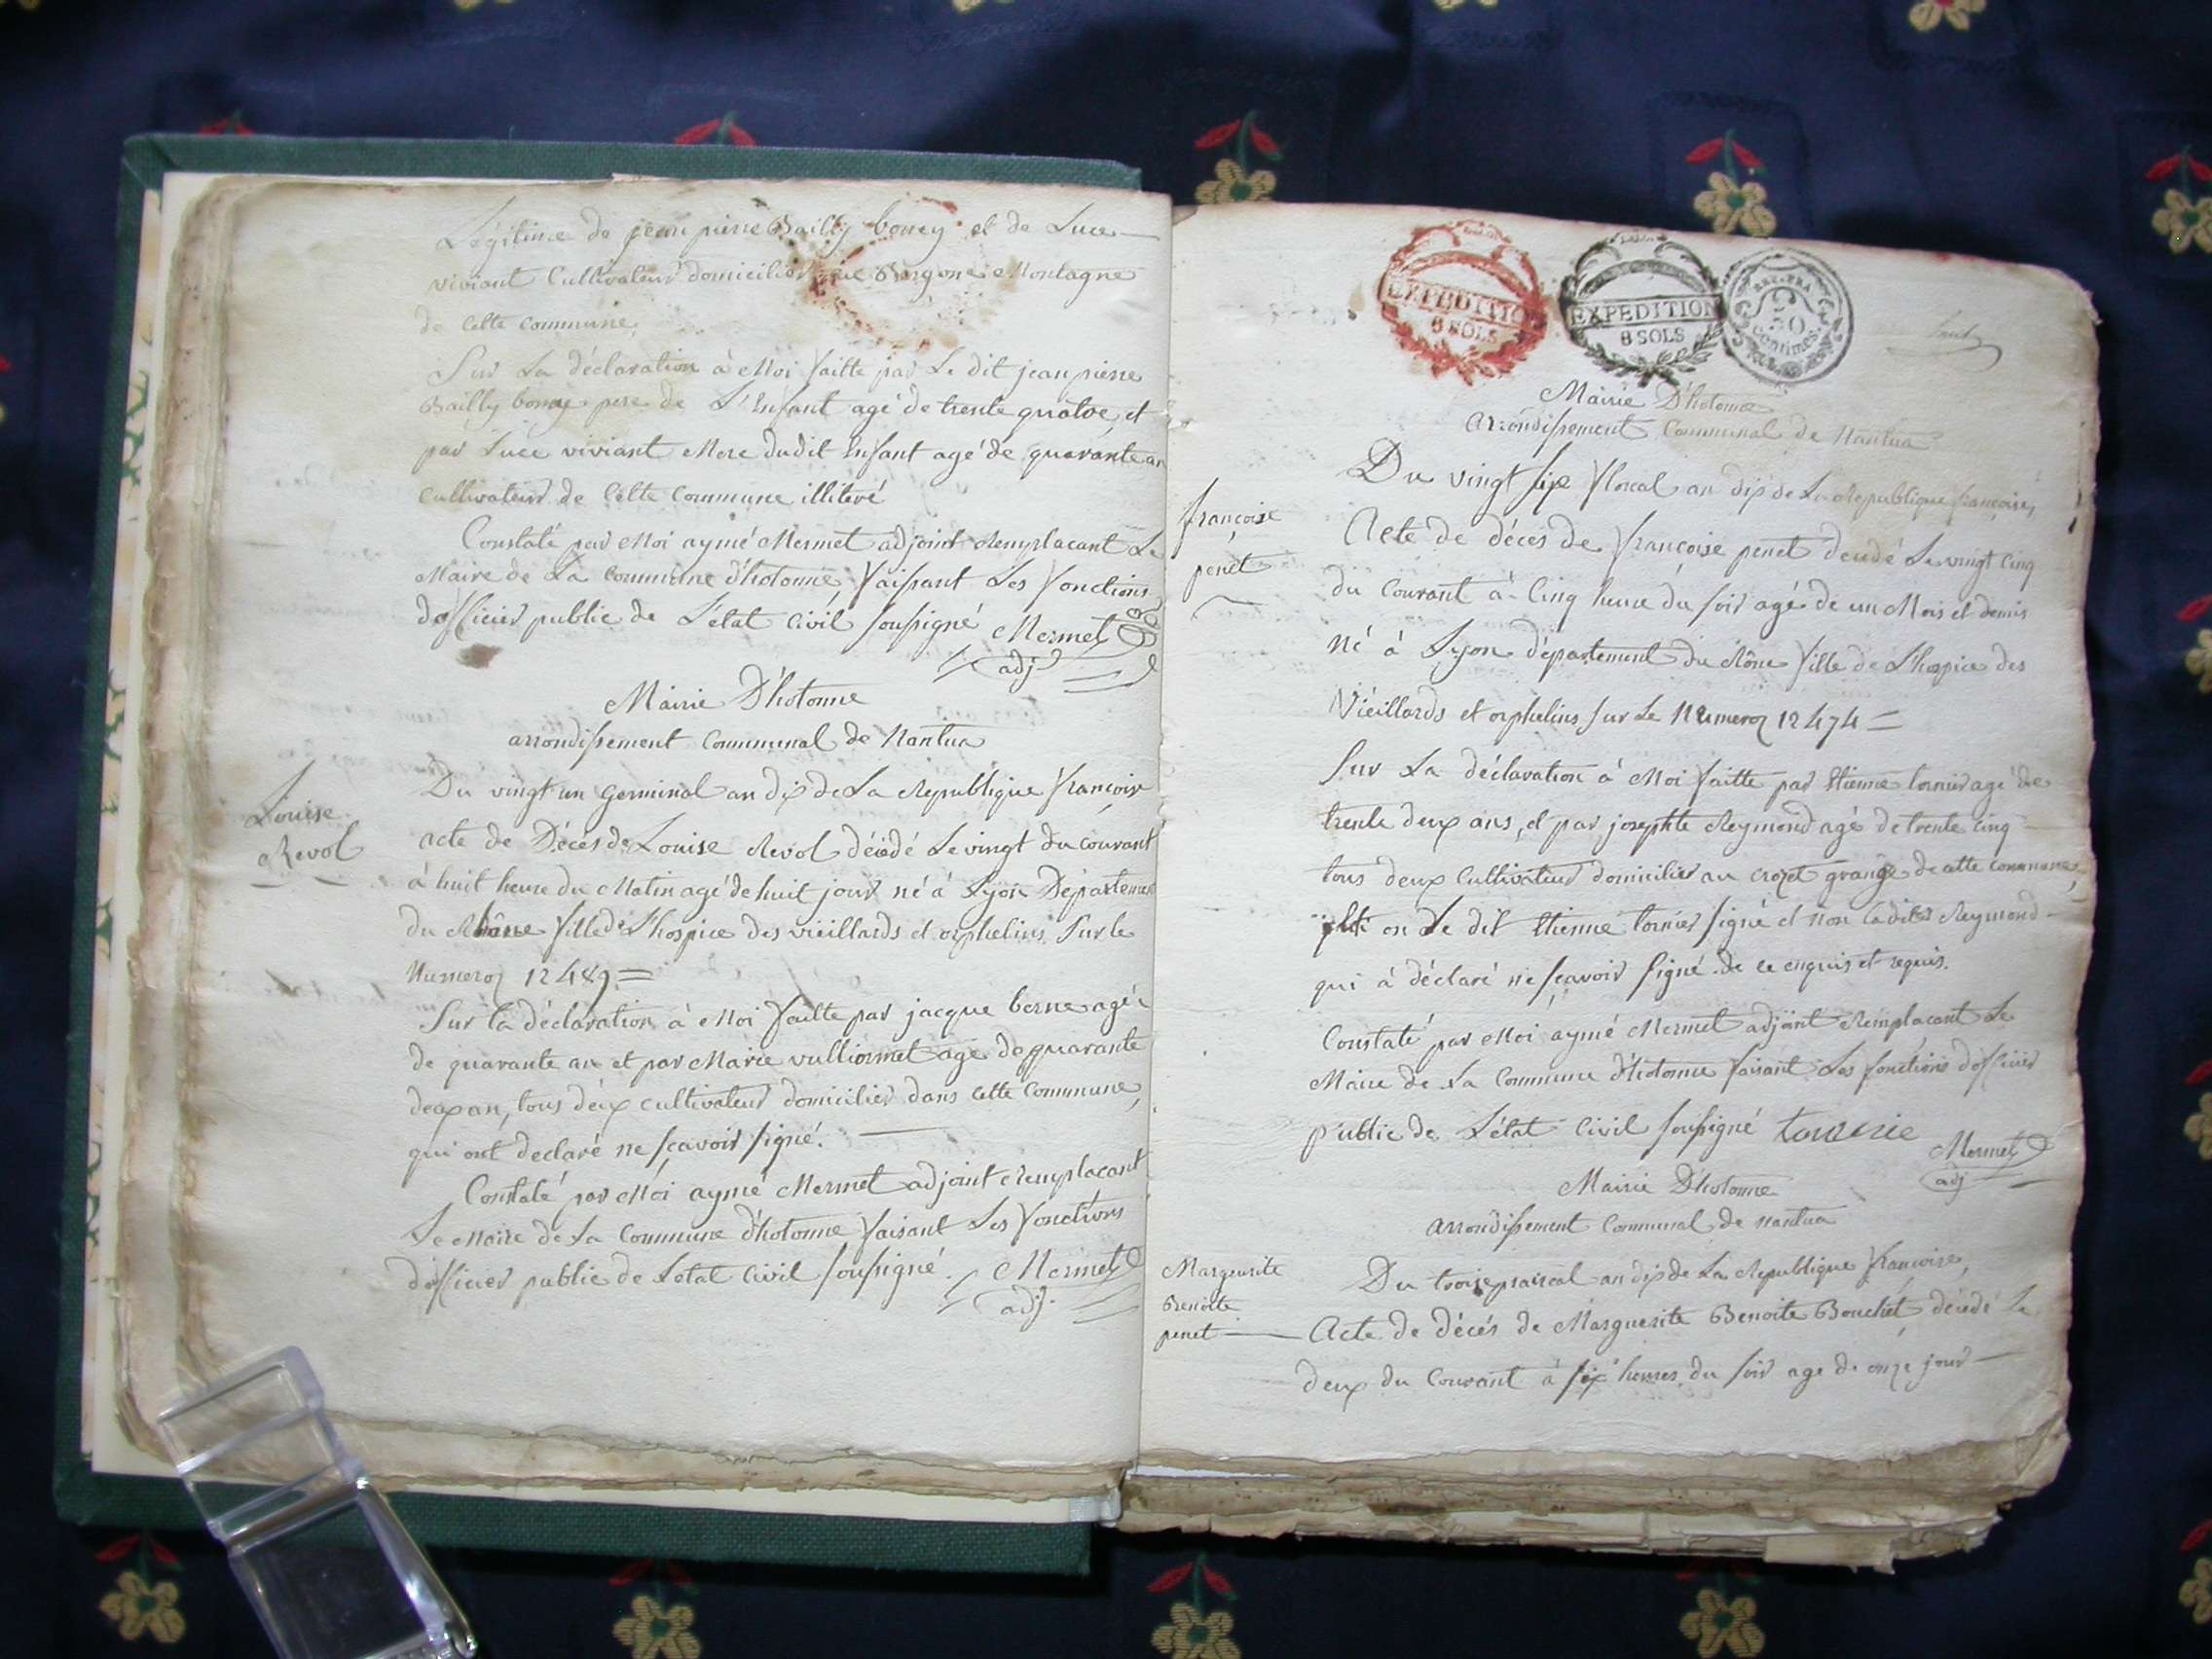 Légitime de jean pierre Bailly bouvy et de Luce
viviant Cultivateurs domiciliés Montagne
de Cette Commune,
Sur La déclaration à Moi faitte par Le dit jean pierre
Bailly père de L'Enfant agé de trente quatre, et
par Luce viviant Mere dudit Enfant agé de quarante an
Cultivateurs de Cette Commune illiteré
Constaté par Moi aymé Mermet adjoint Remplacant Le
Maire de La Commune d'hotonne, faisant Les fonctions
d'officier public de L'état Civil soussigné Mermet
adj
Mairie D'hotonne
arrondissement Communal de Nantua
Louise
Revol
Du vingt un Germinal an dix de La Republique françoise
acte de Décès de Louise Revol décédé Le vingt du courant
à huit heure du Matin agé de huit jour né à Lyon Département
du Rhône fille de L'hospice des vieillards et orphelins Sur le
Numero 12489 =
Sur la déclaration à Moi faitte par jacque berne agé
de quarante an et par Marie vulliormet agé de quarante
deux an, tous deux cultivateurs domiciliés dans cette Commune,
qui ont declaré ne sçavoir signé.
Constaté par Moi aymé Mermet adjoint Remplacant
Le Maire de La Commune d'hotonne, faisant Les fonctions
d'officier public de L'etat Civil soussigné. Mermet
adj.
EXPEDITION
8 SOLS
EXPEDITION
8 SOLS
REP. FRA.
50
Centimes.
Mairie D'hotonne
Arrondissement Communal de Nantua
françoise
penet
Du vingt six floreal an dix de La Republique françoise,
Acte de décès de françoise penet décédé Le vingt cinq
du Courant à Cinq heure du soir agé de un Mois et demis
Né à Lyon département du Rône fille de L'hospice des
Vieillards et orphelins sur Le Numero 12474 =
Sur La déclaration à Moi faitte par Etienne tornier agé de
trente deux ans, et par josephte Reymond agé de trente cinq
tous deux Cultivateurs domiciliés au crozet grange de cette commune,
on Le dit Etienne tornier signé et non ladite Reymond
qui à déclaré ne sçavoir signé. de ce enquis et requis.
Constaté par Moi aymé Mermet adjoint Remplacant Le
Maire de La Commune d'hotonne faisant Les fonctions d'officier
public de L'état Civil soussigné
Mermet
adj
Mairie D'hotonne
Arrondissement Communal de nantua
Marguerite
Benoite
penet
Du trois prairéal an dix de La Republique françoise,
Acte de décés de Marguerite Benoite Bouchet, décédé le
deux du Courant à six heures du soir agé de onze jour